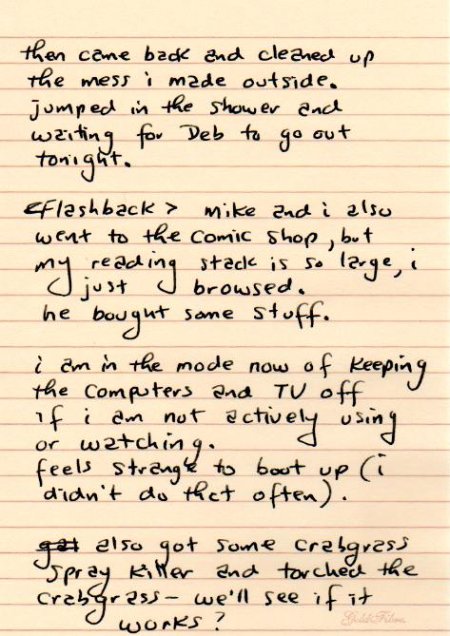 then came back and cleaned up
the mess i made outside.
jumped in the shower and
waiting for Deb to go out
tonight.
<flashback> mike and i also
went to the comic shop, but
my reading stack is so large, i
just browsed.
he bought some stuff.
i am in the mode now of keeping
the computers and TV off
if i am not actively using
or watching.
feels strange to boot up (i
didn't do that often).
got also got some crabgrass
spray killer and torched the
crabgrass - we'll see if it
works?